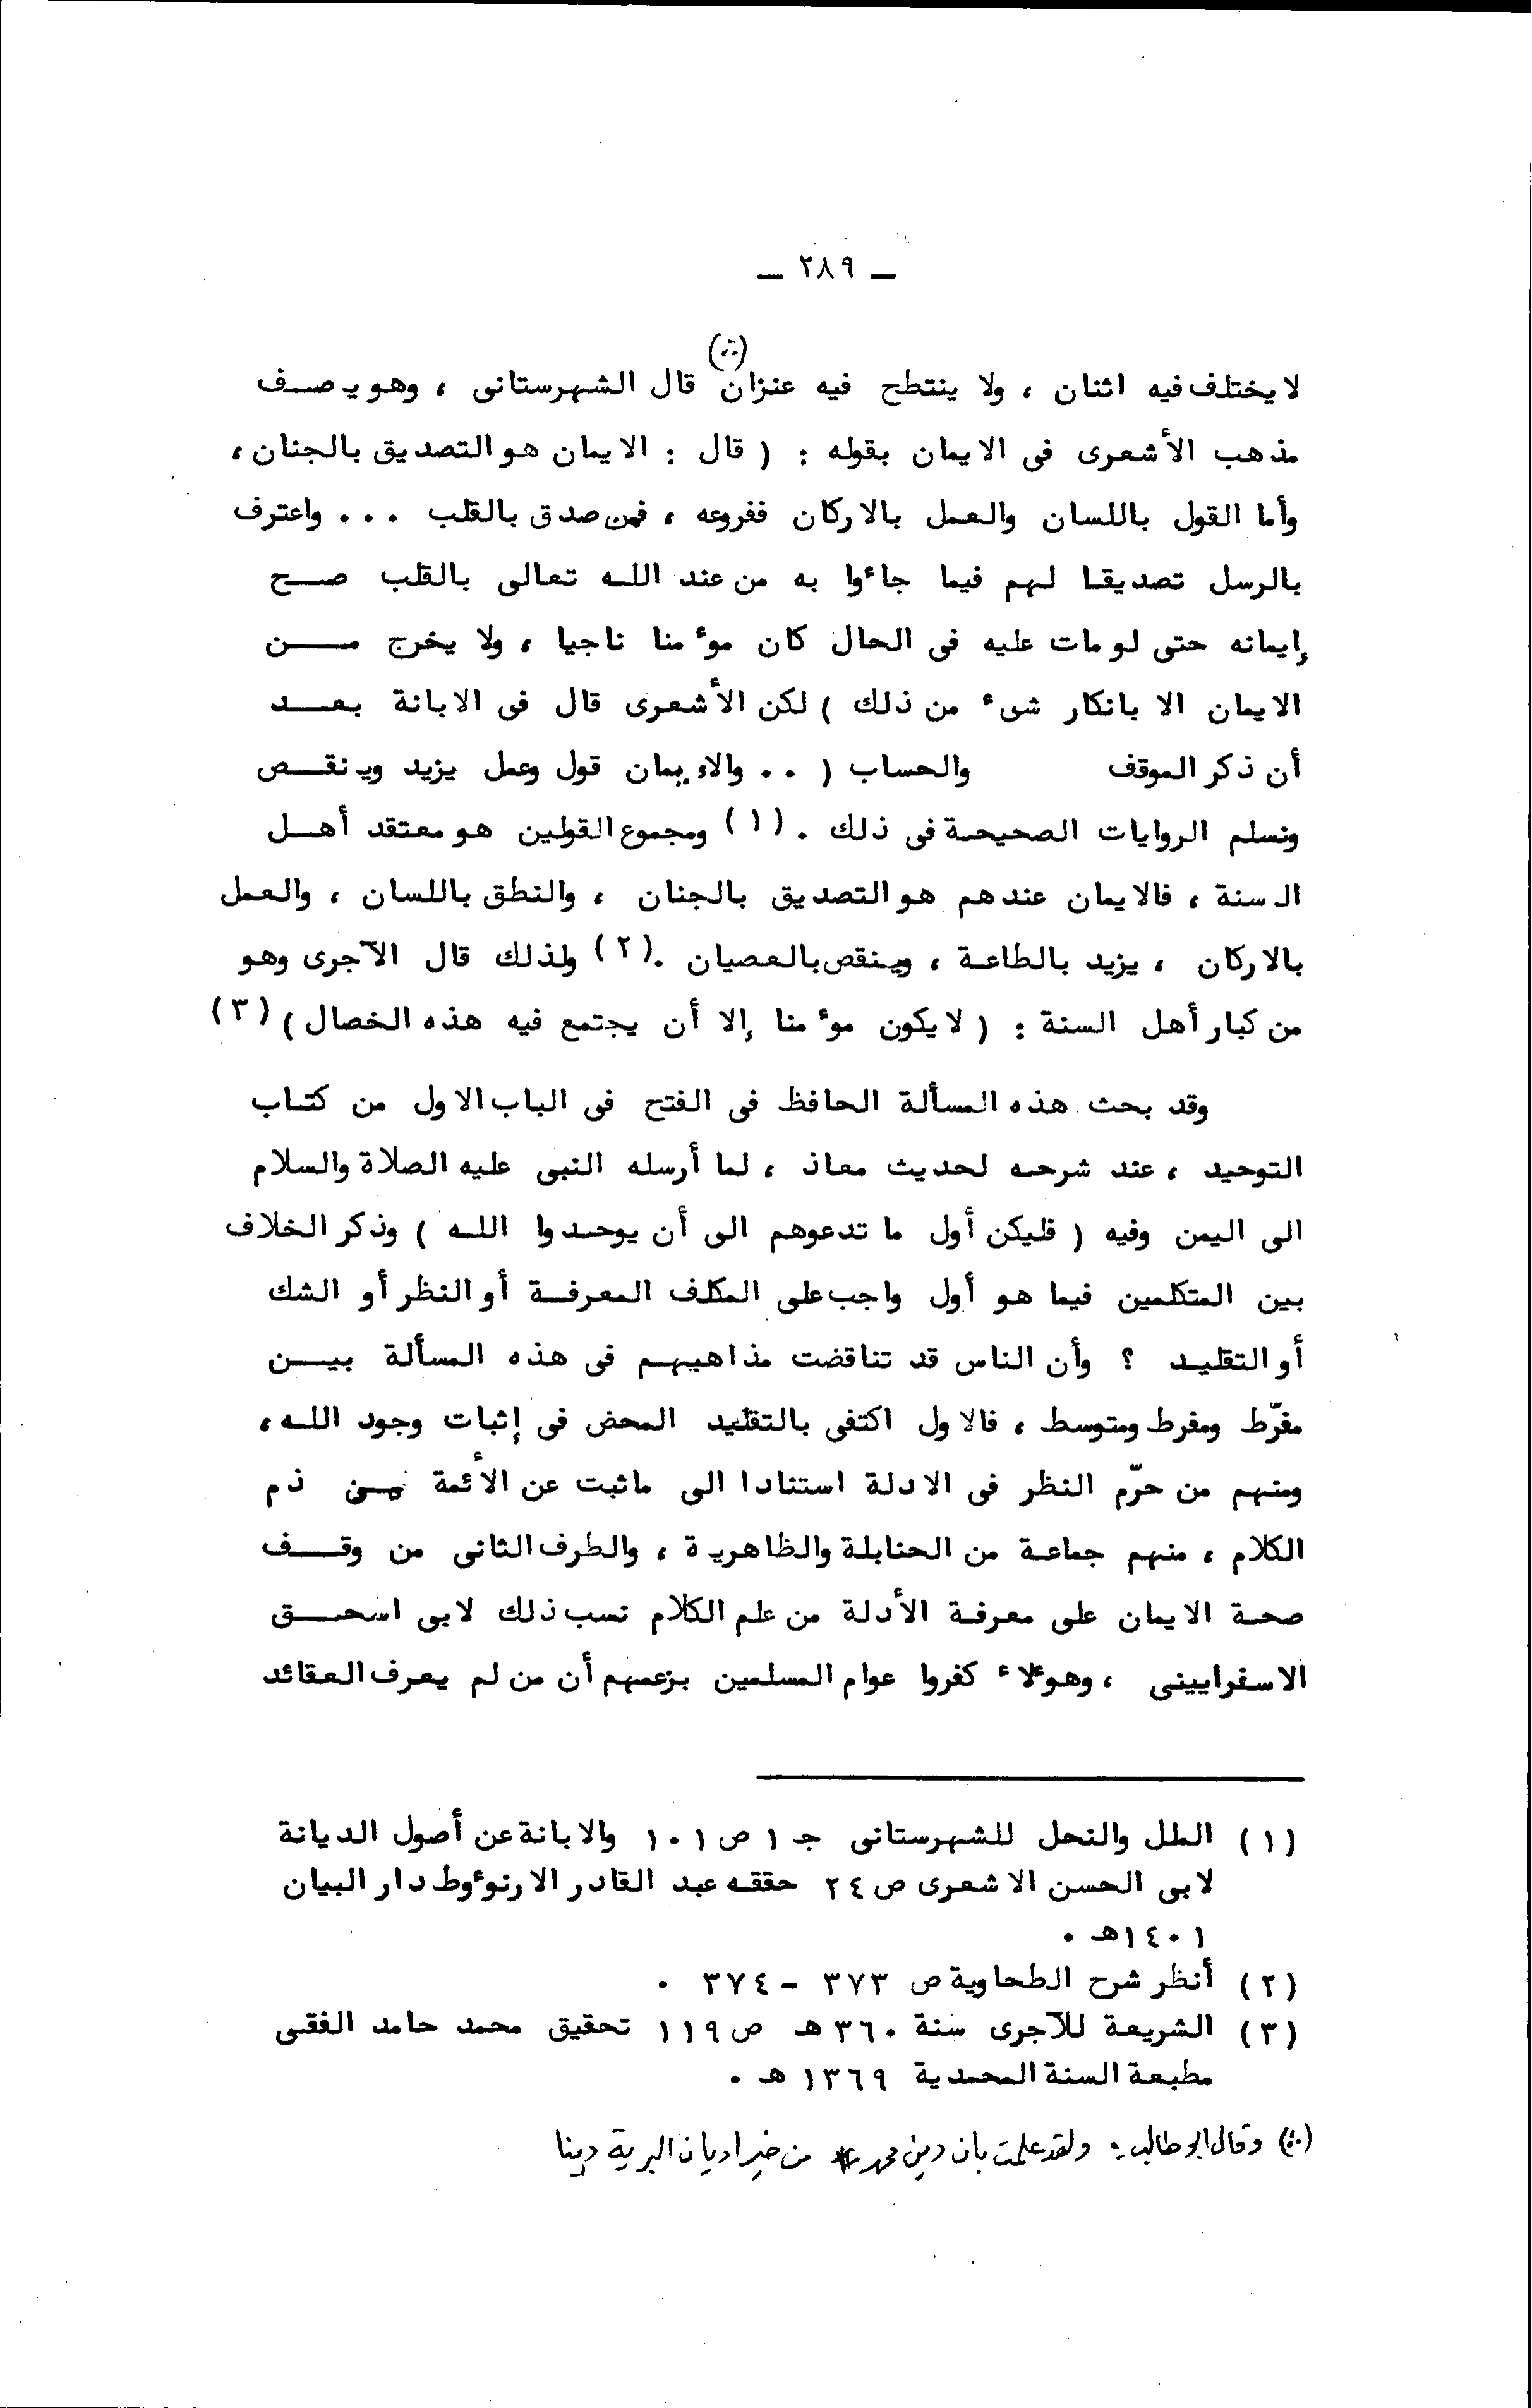 - ٢٨٩ -
لا يختلف فيه اثنان ، ولا ينتطح فيه عنزان (*) قال الشهرستانى ، وهو يصف
مذهب الأشعرى فى الايمان بقوله : ( قال : الايمان هو التصديق بالجنان ،
وأما القول باللسان والعمل بالاركان ففروعه ، فمن صدق بالقلب ... واعترف
بالرسل تصديقا لهم فيما جاءوا به من عند الله تعالى بالقلب صح
إيمانه حتى لو مات عليه فى الحال كان موءمنا ناجيا ، ولا يخرج من
الايمان الا بانكار شىء من ذلك ) لكن الأشعرى قال فى الابانة بعد
أن ذكر الموقف والحساب ( .. والايمان قول وعمل يزيد وينقص
ونسلم الروايات الصحيحة فى ذلك . (١) ومجموع القولين هو معتقد أهل
السنة ، فالايمان عندهم هو التصديق بالجنان ، والنطق باللسان ، والعمل
بالاركان ، يزيد بالطاعة ، وينقص بالعصيان .(٢) ولذلك قال الآجرى وهو
من كبار أهل السنة : ( لا يكون موءمنا إلا أن يجتمع فيه هذه الخصال ) (٣)
وقد بحث هذه المسألة الحافظ فى الفتح فى الباب الاول من كتاب
التوحيد ، عند شرحه لحديث معاذ ، لما أرسله النبى عليه الصلاة والسلام
الى اليمن وفيه ( فليكن أول ما تدعوهم الى أن يوحدوا الله ) وذكر الخلاف
بين المتكلمين فيما هو أول واجب على المكلف المعرفة أو النظر أو الشك
أو التقليد ؟ وأن الناس قد تناقضت مذاهبهم فى هذه المسألة بين
مفرّط ومفرط ومتوسط ، فالاول اكتفى بالتقليد المحض فى إثبات وجود الله ،
ومنهم من حرّم النظر فى الادلة استنادا الى ماثبت عن الأئمة من ذم
الكلام ، منهم جماعة من الحنابلة والظاهرية ، والطرف الثانى من وقف
صحة الايمان على معرفة الأدلة من علم الكلام نسب ذلك لابى اسحق
الاسفرايينى ، وهوءلاء كفروا عوام المسلمين بزعمهم أن من لم يعرف العقائد
(١) الملل والنحل للشهرستانى جـ ١ ص ١٠١ والابانة عن أصول الديانة
لابى الحسن الاشعرى ص ٢٤ حققه عبد القادر الارنوءوط دار البيان
١٤٠١هـ .
(٢) أنظر شرح الطحاوية ص ٣٧٣ - ٣٧٤ .
(٣) الشريعة للآجرى سنة ٣٦٠ هـ ص ١١٩ تحقيق محمد حامد الفقى
مطبعة السنة المحمدية ١٣٦٩ هـ .
(*) وقال ابو طالب : ولقد علمت بان دين محمد * من خير اديان البرية دينا